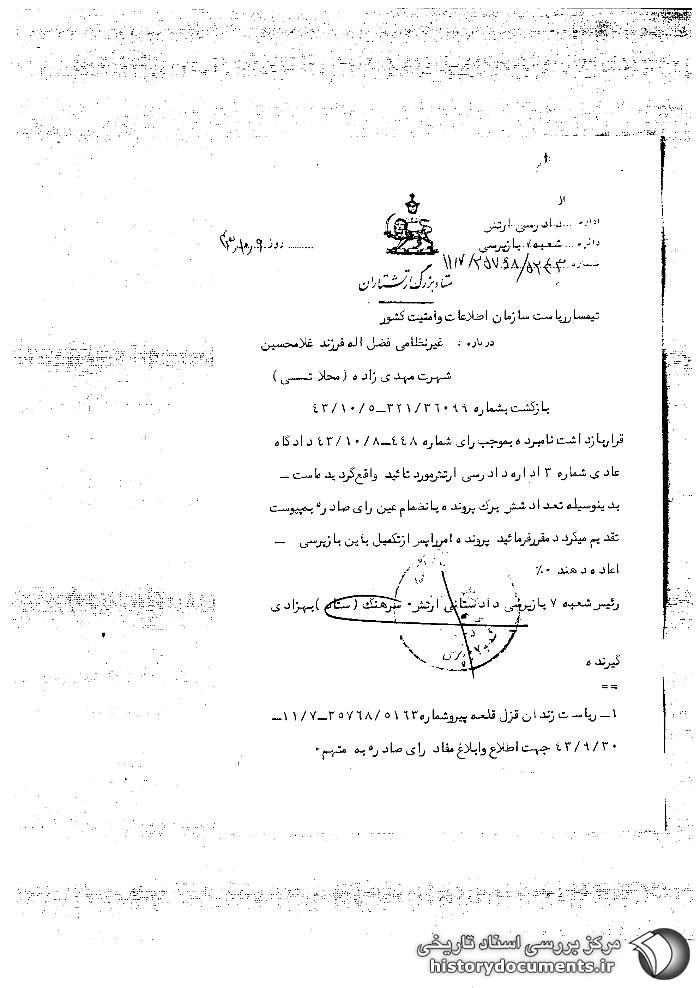 از
اداره ... دادرسی ارتش
دائره ... شعبه ۷ بازپرسی
شماره
روز
ستاد بزرگ ارتشتاران
تیمسار ریاست سازمان اطلاعات وامنیت کشور
درباره : غیرنظامی فضل اله فرزند غلامحسین
شهرت مهدی زاده (محلاتی)
بازگشت بشماره ۳۲۱/۳۶۰۹۹ــ۴۳/۱۰/۵
قراربازداشت نامبرده بموجب رای شماره ۴۴۸ــ۴۳/۱۰/۸ دادگاه
عادی شماره ۳ اداره دادرسی ارتش مورد تائید واقع گردیده است ــ
بدینوسیله تعداد شش برگ پرونده بانضمام عین رای صادره بپیوست
تقدیم میگردد مقررفرمائید پرونده امر را پس ازتکمیل باین بازپرسی ــ
اعاده دهند ۰٪
رئیس شعبه ۷ بازپرسی دادستانی ارتش۰ سرهنگ (ستاد) بهزادی
شعبه ۷ بازپرسی
گیرنده
==
۱ــ ریاست زندان قزل قلعه پیروشماره ۲۵۷۶۸/۵۱۶۳ــ۱۱/۷ــ
۴۳/۹/۳۰ جهت اطلاع وابلاغ مفاد رای صادره به متهم۰
مرکز بررسی اسناد تاریخی
historydocuments.ir